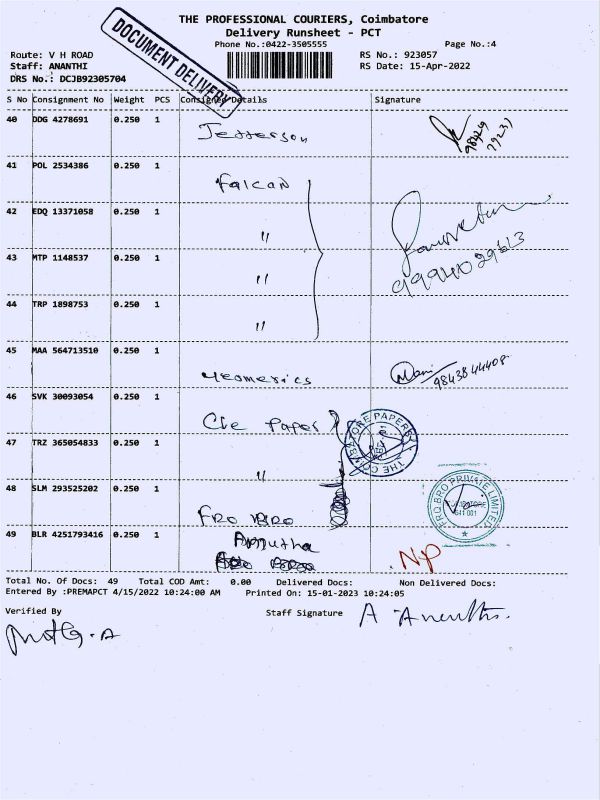 THE PROFESSIONAL COURIERS, Coimbatore
Delivery Runsheet - PCT
Phone No.:0422-3505555
Page No.:4
DOCUMENT DELIVERY
Route: V H ROAD
RS No.: 923057
Staff: ANANTHI
RS Date: 15-Apr-2022
DRS No.: DCJB92305704
S No Consignment No Weight PCS Consignee Details Signature
40 DDG 4278691 0.250 1 Jefferson
41 POL 2534386 0.250 1 falcan
42 EDQ 13371058 0.250 1 "
9994029613
43 MTP 1148537 0.250 1 "
44 TRP 1898753 0.250 1 "
45 MAA 564713510 0.250 1 Geomerics Mani 9843844408
46 SVK 30093054 0.250 1 Cbe Paper
THE COIMBATORE PAPER
47 TRZ 365054833 0.250 1 "
48 SLM 293525202 0.250 1 FRO BRO
FRO BRO PRIVATE LIMITED
COIMBATORE
641 001
49 BLR 4251793416 0.250 1 Amrutha NP
Total No. Of Docs: 49 Total COD Amt: 0.00 Delivered Docs: Non Delivered Docs:
Entered By :PREMAPCT 4/15/2022 10:24:00 AM Printed On: 15-01-2023 10:24:05
Verified By
Staff Signature A. Ananthi.